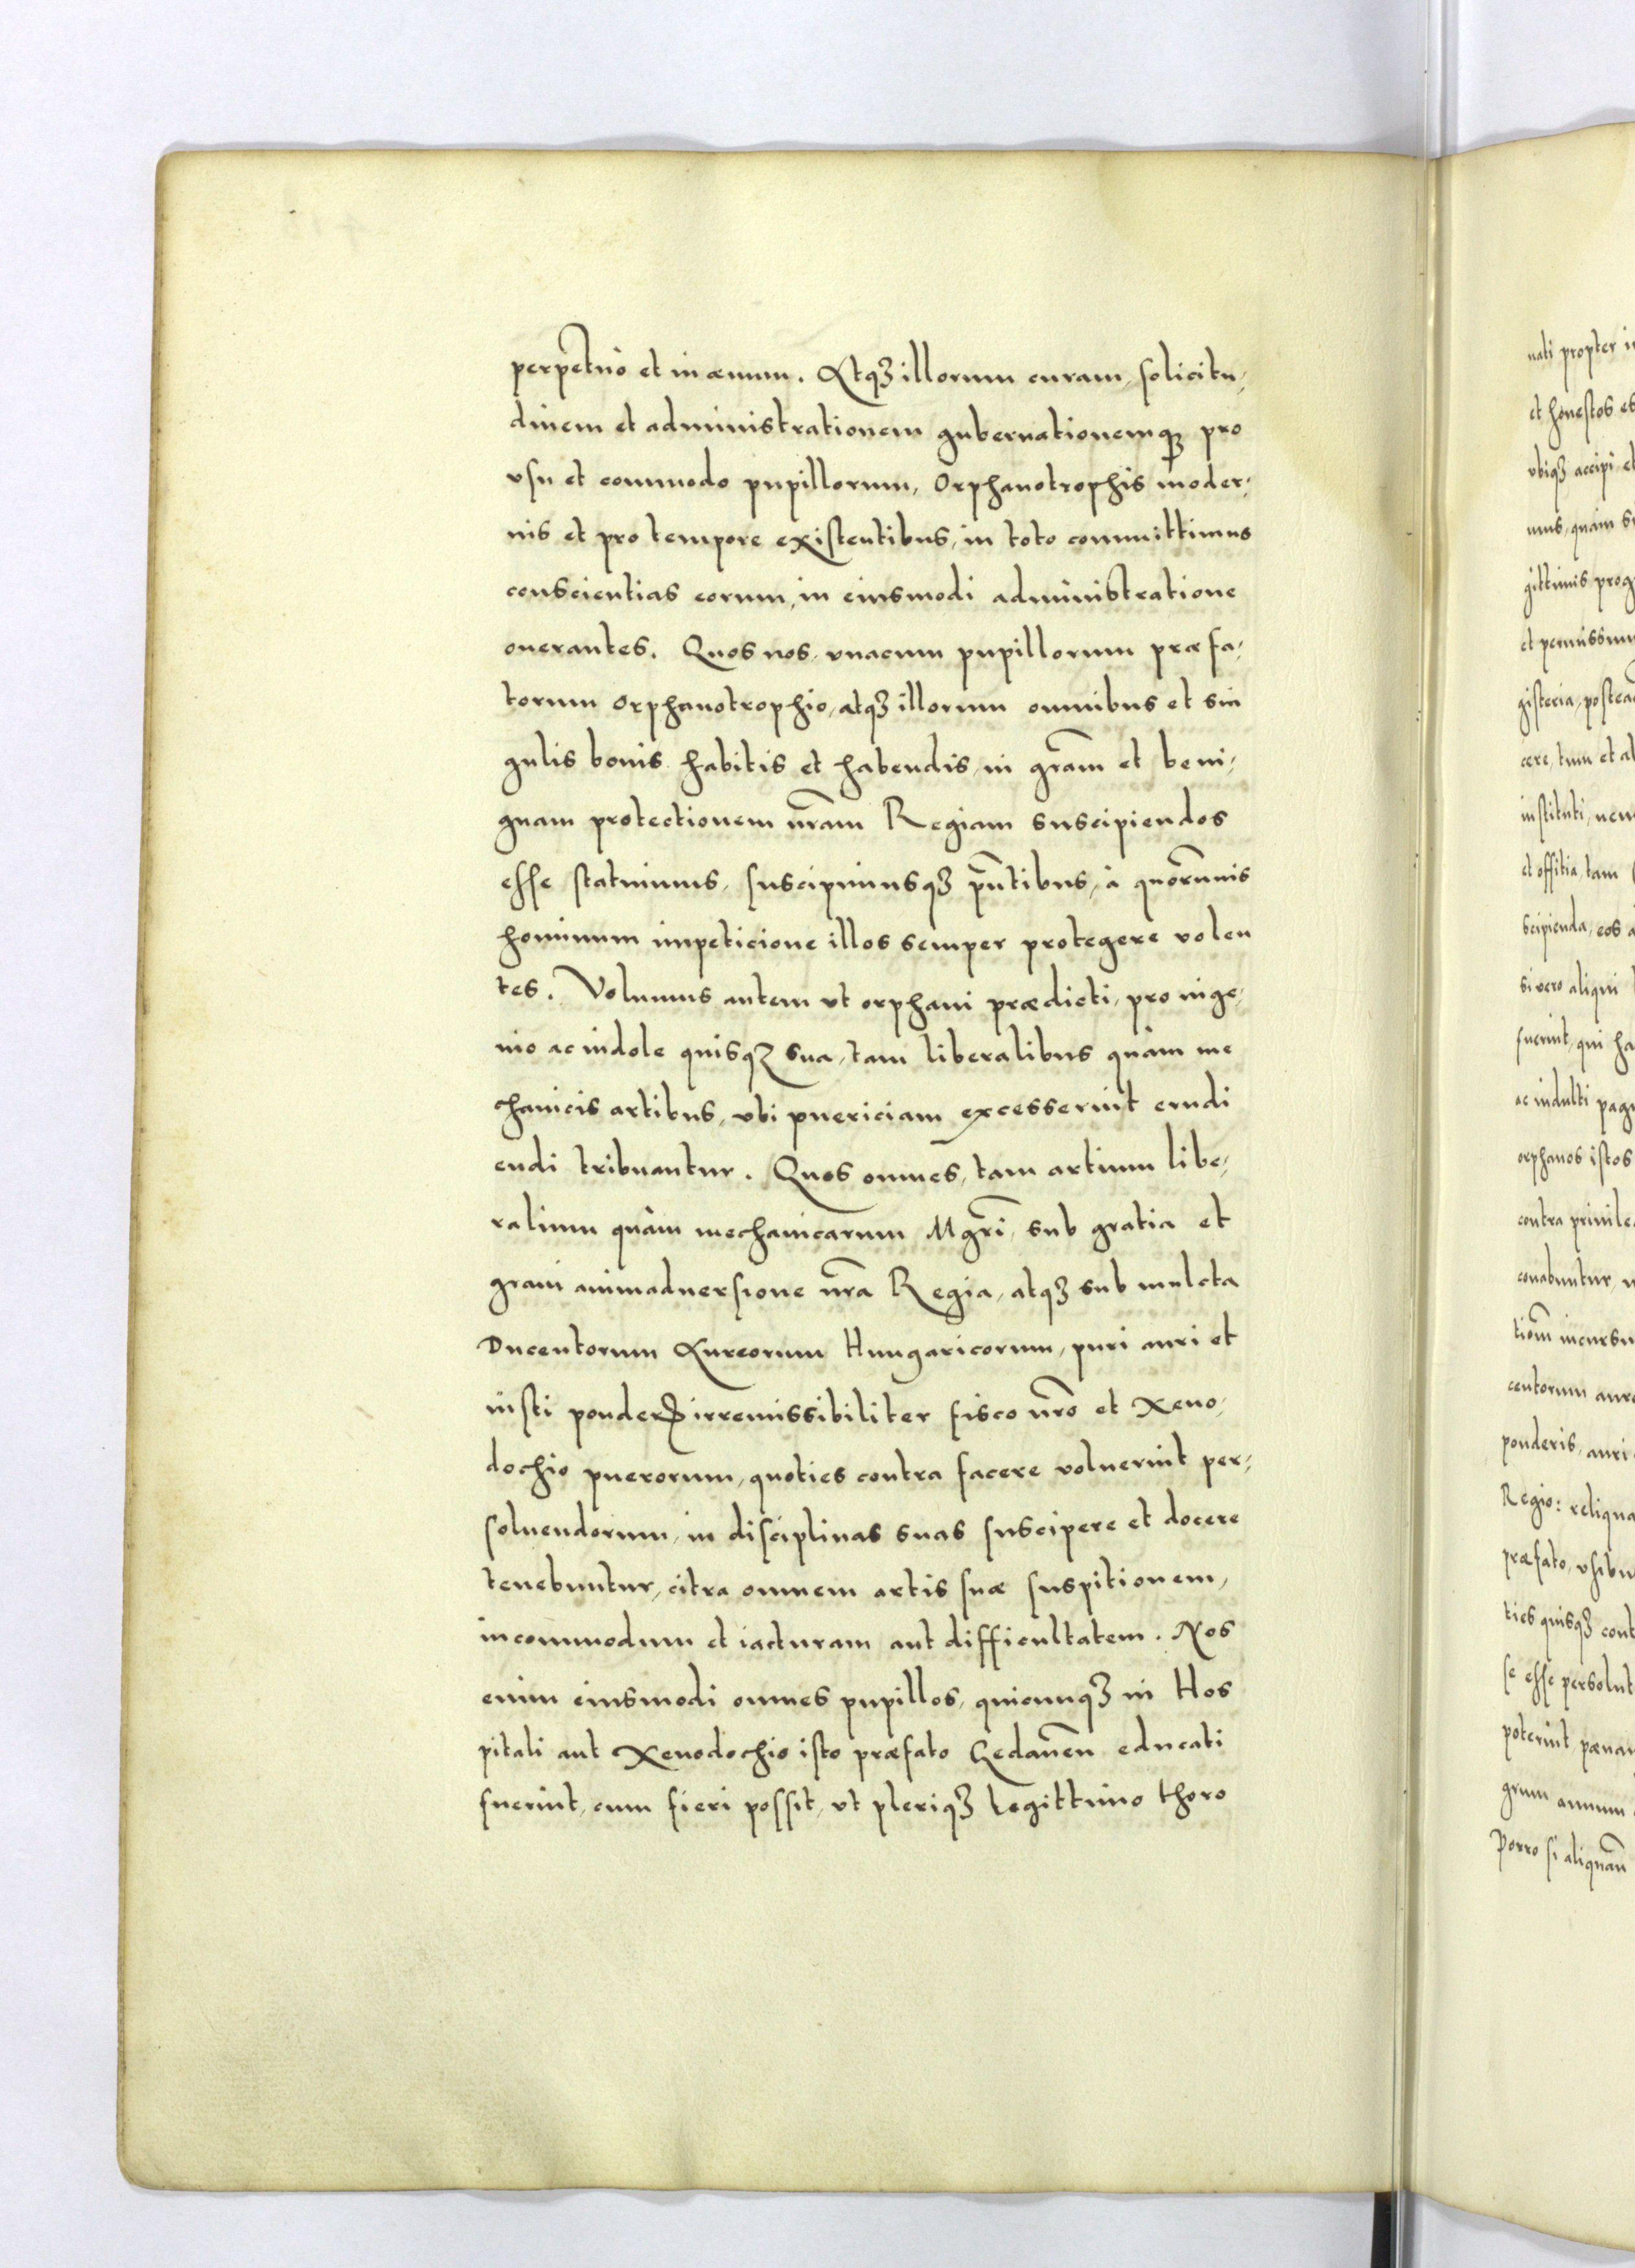 perpetuò et in æuum. Atqꝫ illorum curam, solicitu,
dinem et administrationem gubernationemqꝫ pro
vsu et commodo pupillorum, Orphanotrophis moder,
nis et pro tempore existentibus, in toto committimus
conscientias eorum, in eiusmodi administratione
onerantes. Quos nos, vnacum pupillorum præfa,
torum Orphanotrophio, atqꝫ illorum omnibus et sin
gulis bonis habitis et habendis, in gra͠m et beni,
gnam protectionem nr͠am Regiam suscipiendos
esse statuimus, suscipimusqꝫ pn͠tibus, à quoru͠uis
hominum impeticione illos semper protegere volen
tes. Volumus autem vt orphani prædicti, pro inge,
nio ac indole quisqꝫ sua, tam liberalibus quàm me
chanicis artibus, vbi puericiam excesserint erudi
endi tribuantur. Quos omnes, tam artium libe,
ralium quàm mechanicarum Mgr͠i, sub gratia et
graui animaduersione nr͠a Regia, atqꝫ sub mulcta
Ducentorum Aureorum Hungaricorum, puri auri et
iusti ponderꝭ irremissibiliter fisco nr͠o et Xeno,
dochio puerorum, quoties contra facere voluerint per,
soluendorum, in disciplinas suas suscipere et docere
tenebuntur, citra omnem artis suæ suspitionem,
incommodum et iacturam aut difficultatem. Nos
enim eiusmodi omnes pupillos, quicunqꝫ in Hos
pitali aut Xenodochio isto præfato Gedane͠n educati
fuerint, cum fieri possit, vt pleriqꝫ legittimo thoro
nati propter
et honestos
vbiqꝫ accipi, et
mus, quàm
gittimis
et permissum
gisteria, postea
cere, tum et
instituti,
et offitia, tam
scipienda, eos
si vero aliqui
fuerint, qui
ac indulti
orphanos istos
contra
conabuntur,
incursu
centorum
ponderis, auri
Regio: reliqua
præfato,
ties quisqꝫ
se esse
poterint, pænam
annum
Porro si